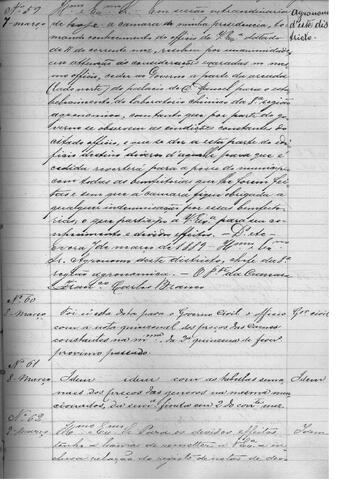 Nº 59
7-março
Illmo Exmo Sr. Em sessão extraordinaria
de hoje, a camara da minha presidencia, to-
mando conhecimento do officio de V. Exª datado
de 4 do corrente mez, resolveu por unanimidade
em attenção ás considerações exaradas no mes-
mo officio, ceder ao Governo a parte da arcada
(lado norte) do palacio de D. Manuel para o esta-
belecimento do laboratorio chimico da 9ª região
agronomica, com tanto que por parte do go-
verno se observem as condições constantes do
citado officio, e que se der a esta parte do edi-
ficio destino diverso d'aquelle para que é
cedida reverterá para a posse do municipio
com todas as bemfeitorias que lhe forem fei-
tas, sem que a camara fique obrigada a
qualquer indemnisação por essas bemfei-
torias, o que participo a V. Exª para seu co-
nhecimento e devidos effeitos. - D. etc
Evora 7 de março de 1889 - Illmo Exmo
Sr. Agronomo deste districto, chefe da
região agronomica. - O Pte da Camara
Franco Barbo
Agronomo
d'este dis
tricto
Nº 60
8-Março
Foi n'esta data para o Governo Civil o officio
com a nota quinzenal dos preços das carnes
constantes na da 2ª quinzena de fevr
proximo passado.
Gov civil
Nº 61
8-Março
Idem idem com as tabellas sema
naes dos preços dos generos na mesma
da semª finda em 2 do corte mez
Idem
Nº 62
8-março
Illmo Exmo Sr. Para os devidos effeitos
tenho a honra de remetter a V. Exª a in-
clusa relação do registo de notas de
Idem